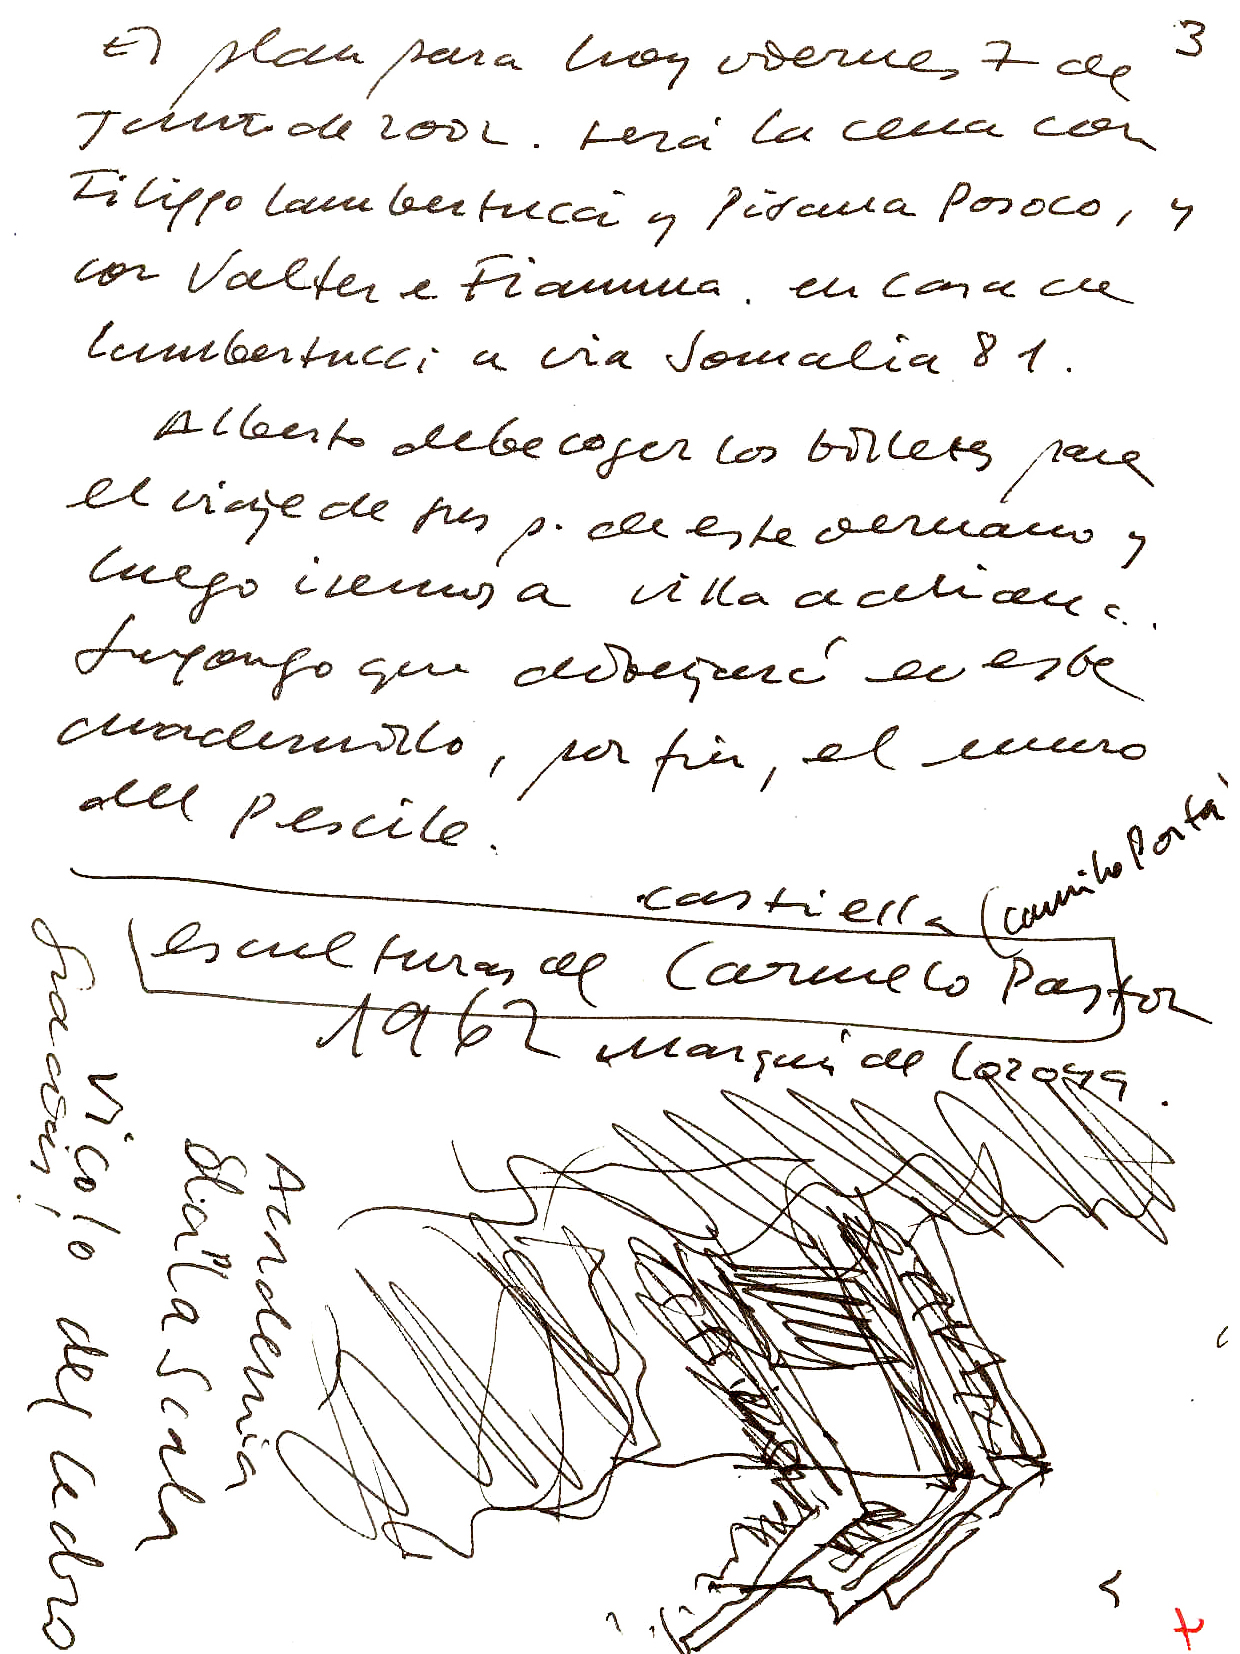 3
El plan para hoy viernes 7 de
Junio de 2002. será la cena con
Filippo Lambertucci y Pisana Posoco, y
con Valter e Fiamma. en casa de
Lambertucci a via Somalia 81.
Alberto debe coger los billetes para
el viaje de sus p. de este verano y
luego iremos a villa adriana.
Supongo que dibujaré en este
cuadernillo, por fin, el muro
del Pecile.
castiella (Camilo Porta
esculturas de Carmelo Pastor
1962 Marqués de Lozoya.
Accademia
della Scala
Vicolo del Cedro